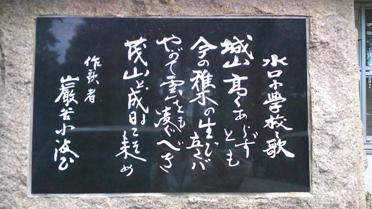 水口小学校の歌
城山高くあらずとも
今の雅木の生ひ立たば
やがて雲をも凌ぐべき
茂山と成る日こそ来め
作歌者
巌谷小波